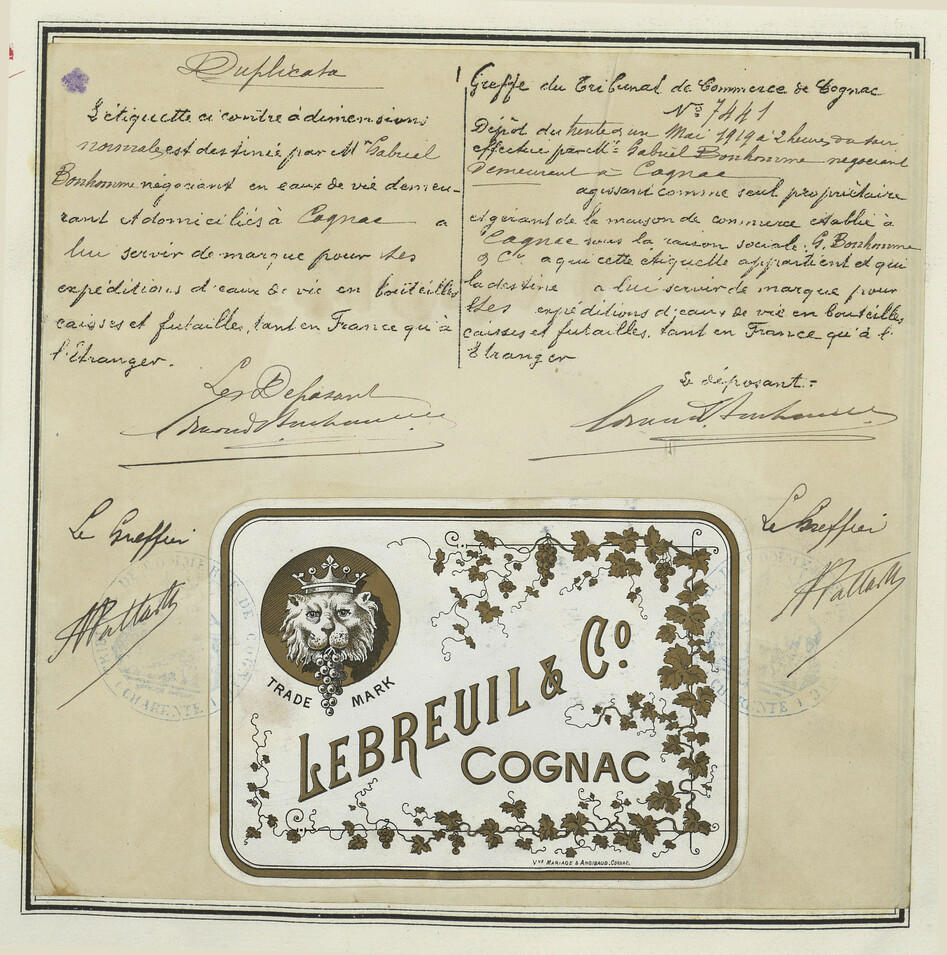 Duplicata
L'étiquette ci contre à dimensions
normales est destinée par Mr Gabriel
Bonhomme négociant en eaux de vie demeu-
rant et domiciliés à Cognac a
lui servir de marque pour ses
expéditions d'eaux de vie en bouteilles
caisses et futailles, tant en France qu'à
l'Etranger.
Les Déposant
Greffe du Tribunal de Commerce de Cognac
No 7441
Dépôt du trente et un Mai 1919 a 2 heures du soir
effectué par Mr Gabriel Bonhomme négociant
demeurant à Cognac
agissant comme seul propriétaire
et gérant de la maison de commerce établie à
Cognac sous la raison sociale: G. Bonhomme
& Cie a qui cette étiquette appartient et qui
la destine a lui servir de marque pour
ses expéditions d'eaux de vie en bouteilles
caisses et futailles, tant en France qu'à l'
Etranger
Le déposant.=
Le Greffier
Le Greffier
DE COMMERCE DE COGNAC
CHARENTE
TRADE MARK
LEBREUIL & Co
COGNAC
Vve MARIAGE & ANGIBAUD. COGNAC.